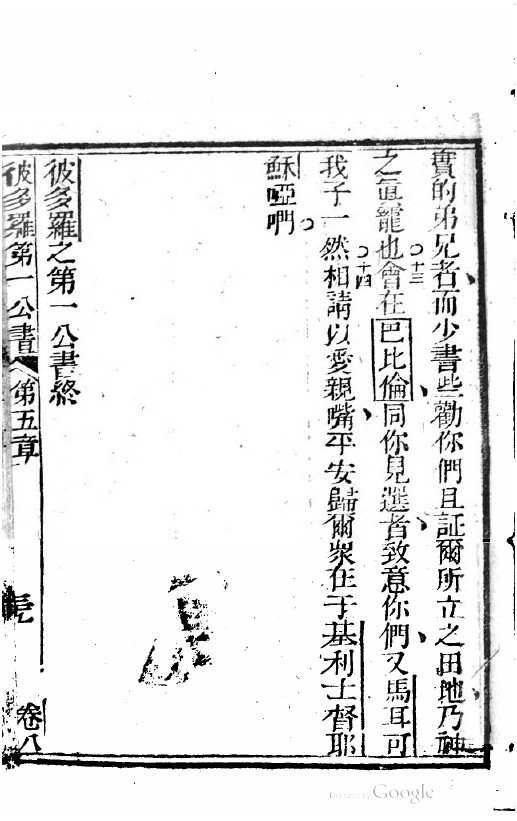 實的弟兄者而少書些勸你們且証爾所立之田地乃神
之眞寵也○十三會在巴比倫同你見選者致意你們又馬耳可
我子○十四一然相請以愛親嘴平安歸爾衆在于基利士督耶
穌啞們○
彼多羅之第一公書終
彼多羅第一公書 第五章 卷八
Digitized by Google